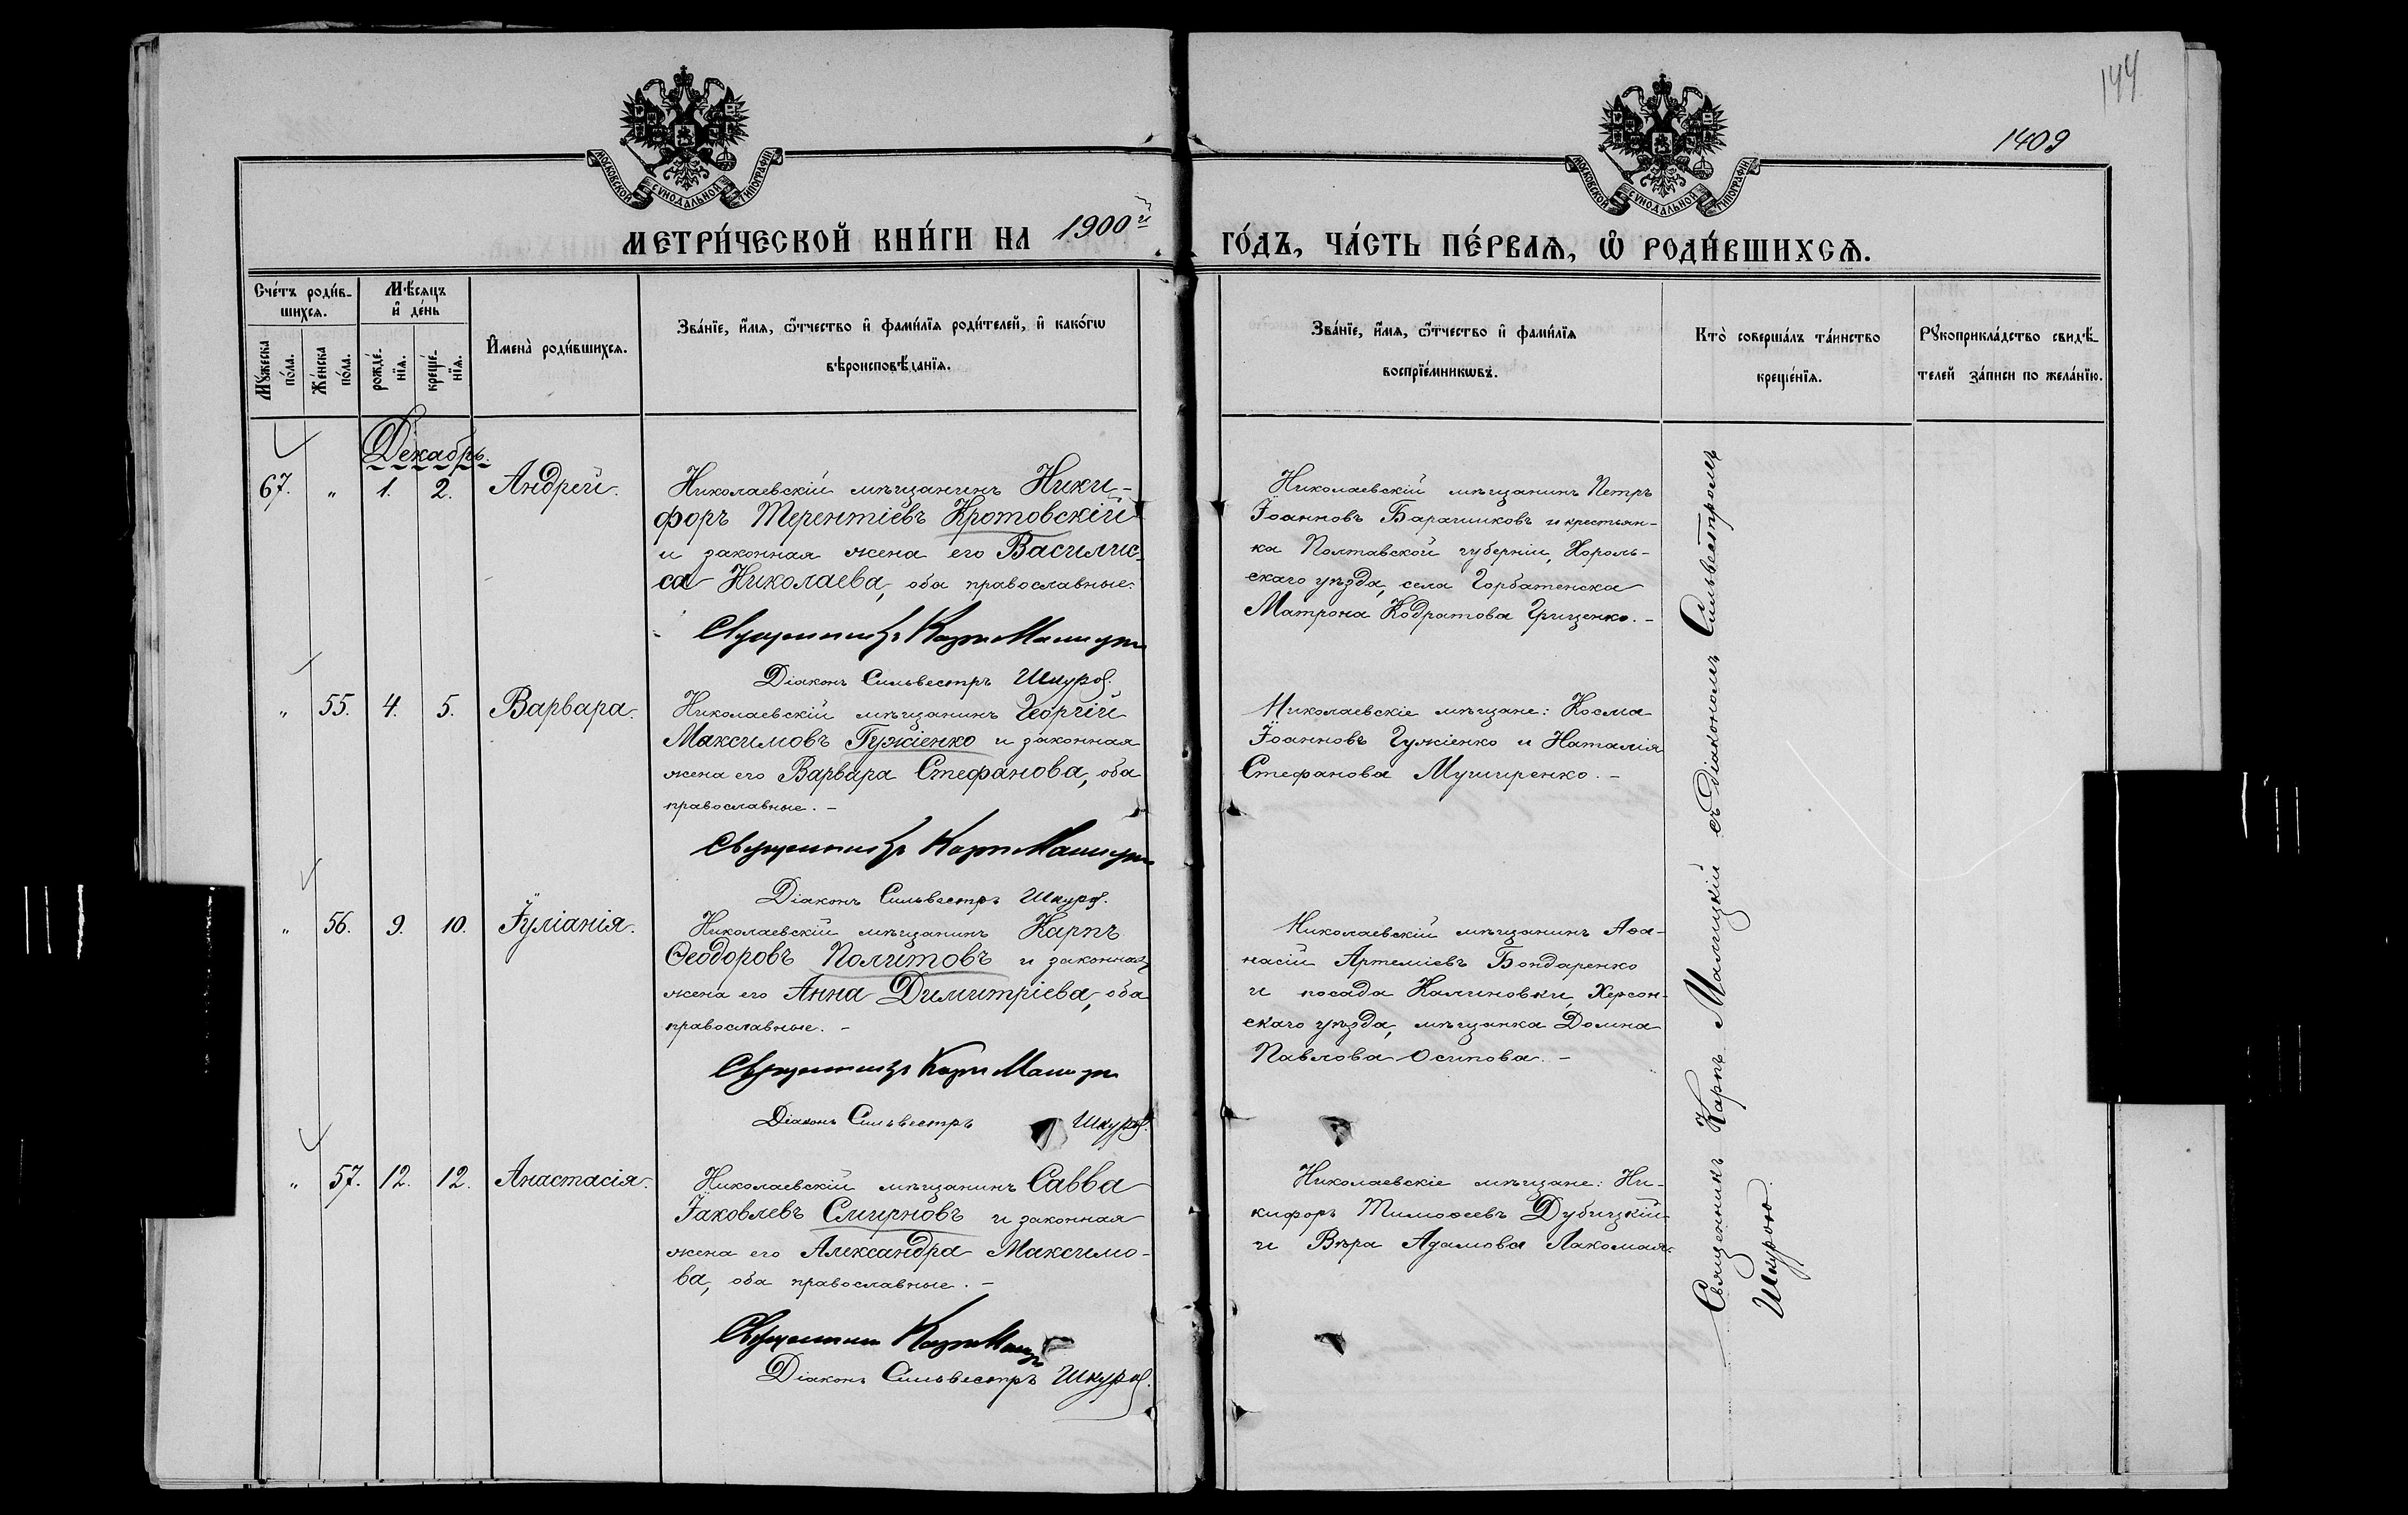 144
1409
МОСКОВСКОЙ СУНОДАЛЬНОЙ ТИПОГРАФІИ
МОСКОВСКОЙ СУНОДАЛЬНОЙ ТИПОГРАФІИ
МЕТРИ́ЧЕСКОЙ КНИ́ГИ НА 1900й
ГО́ДЪ, ЧА́СТЬ ПЕ́РВАѦ, Ѿ РОДИ́ВШИХСѦ.
Сче́тъ роди́в-
шихсѧ.
Мѣ́сѧцъ
и҆ де́нь
Мꙋ́жеска
по́ла.
Же́нска
по́ла.
рожде́-
нїѧ.
креще́-
нїѧ.
И҆мена̀ роди́вшихсѧ.
Зва́нїе, и҆́мѧ, ѻ҆́тчество и҆ фами́лїѧ роди́телей, и҆ како́гѡ
вѣроисповѣ́данїѧ.
Зва́нїе, и҆́мѧ, ѻ҆́тчество и҆ фами́лїѧ
воспрїе́мникѡвъ.
Кто̀ соверша́лъ та́инство
креще́нїѧ.
Рꙋкоприкла́дство свидѣ́-
телей за́писи по жела́нїю.
Декабрь.
67. " 1. 2. Андрей.
Николаевскій мѣщанинъ Ники-
форъ Терентіевъ Кротовскій
и законная жена его Василис-
са Николаева, оба православные.
Священникъ Карпъ
Діаконъ Сильвестръ Шкура.
Николаевскій мѣщанинъ Петръ
Іоанновъ Барашиковъ и крестьян-
ка Полтавской губерніи, Хороль-
скаго уѣзда, села Горбатенска
Матрона Кодратова Грищенко. -
" 55. 4. 5. Варвара.
Николаевскій мѣщанинъ Георгій
Максимовъ Гужіенко и законная
жена его Варвара Стефанова, оба
православные. -
Священникъ Карпъ
Діаконъ Сильвестръ Шкура.
Николаевскіе мѣщане: Косма
Іоанновъ Гужіенко и Наталія
Стефанова -
" 56. 9. 10. Іуліанія.
Николаевскій мѣщанинъ Карпъ
Ѳеодоровъ Политовъ и законная
жена его Анна Димитріева, оба
православные. -
Священникъ Карпъ
Діаконъ Сильвестръ Шкура.
Николаевскій мѣщанинъ Аѳа-
насій Артеміевъ Бондаренко
и посада Калиновки, Херсон-
скаго уѣзда, мѣщанка Домна
Павлова Осипова. -
" 57. 12. 12. Анастасія.
Николаевскій мѣщанинъ Савва
Іаковлевъ Смирновъ и законная
жена его Александра Максимо-
ва, оба православные. -
Священникъ Карпъ
Діаконъ Сильвестръ Шкура.
Николаевскіе мѣщане: Ни-
кифоръ Тимоѳеевъ Дубицкій
и Вѣра Адамова Лакомая.
Священникъ Карпъ Малицкій съ діакономъ Сильвестромъ
Шкурою.